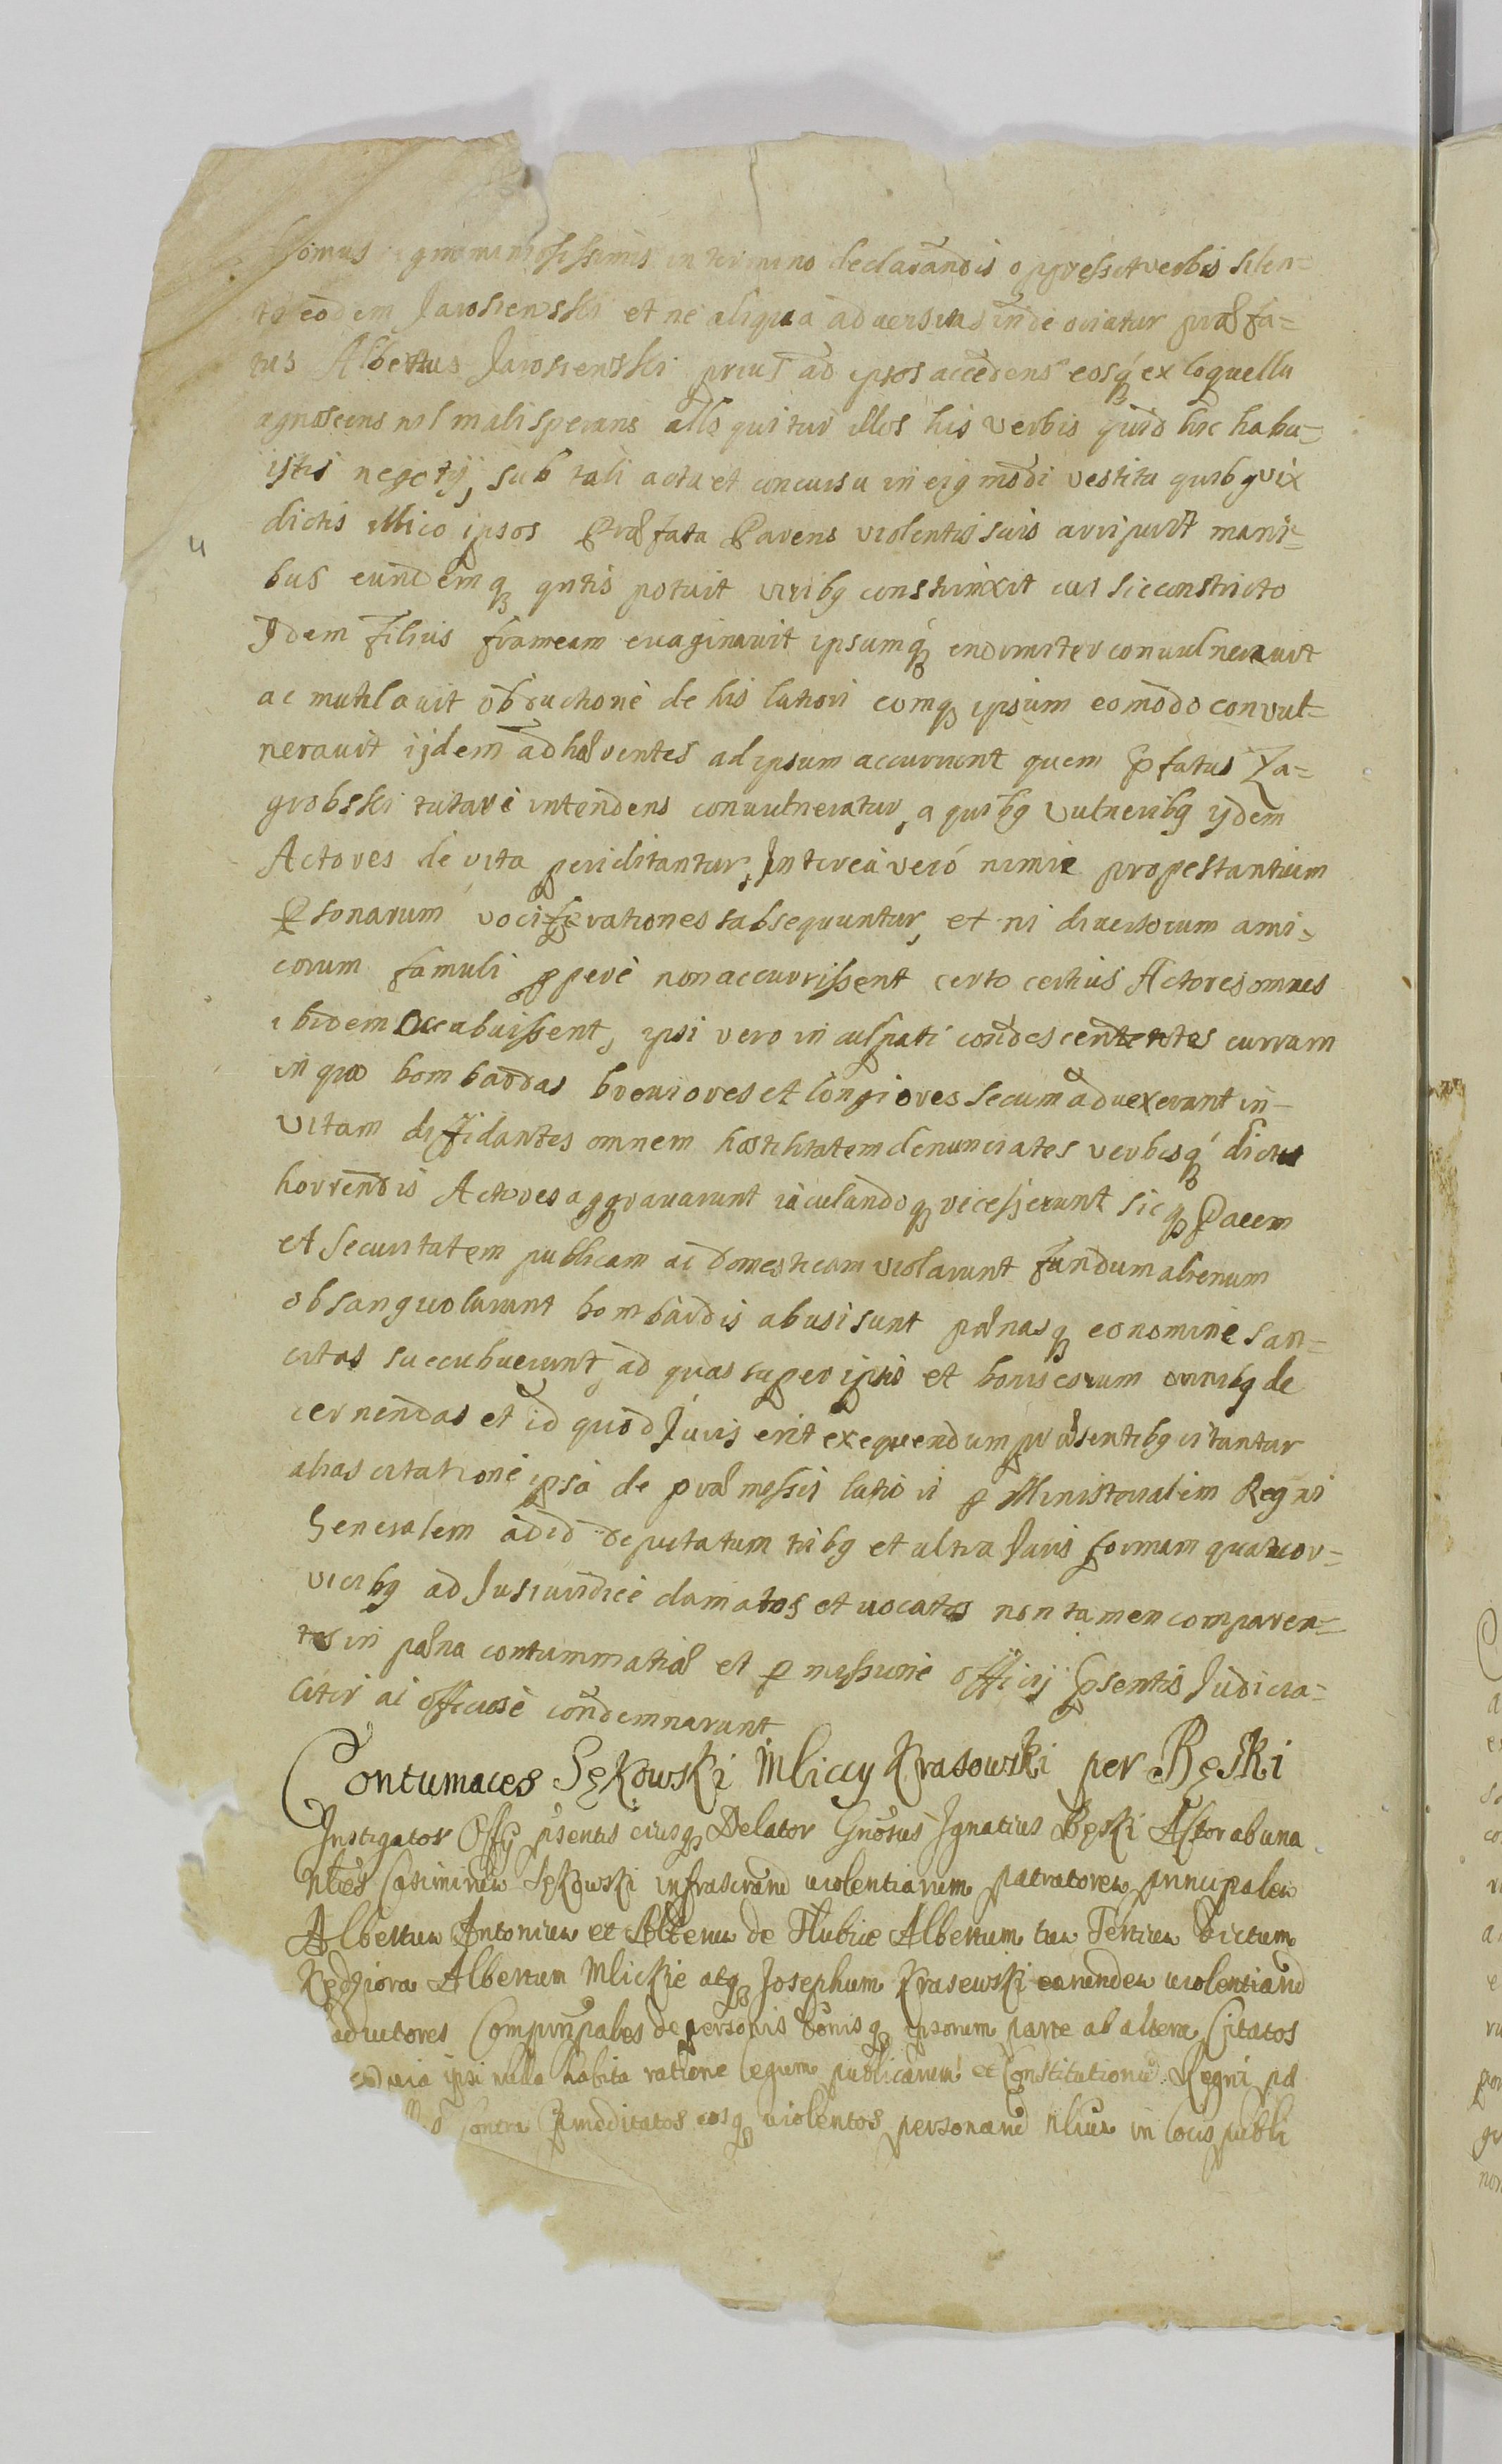 domus ignominiosissimis in termino declarandis oppressit verbis silen=
te eodem Jarosienski et ne aliqua adversitas inde oriatur præfa=
tus Albertus Jarosienski prius ad ipsos accedens eosq́ ex loquella
agnoscens nil mali sperans alloquitur illos his verbis quid hic habu=
istis negotij, sub tali actu et concursu in eigmodi vestitu quibg vix
dictis illico ipsos Præfata Parens violentis suis arripuit mani=
bus eundemq qntis potuit viribg constrinxit cui sic constricto
Idem filius frameam evaginavit ipsumq́ enormiter convulneravit
ac mutilavit obductione de his latiori cumq ipsum eo modo convul=
neravit ijdem adhærentes ad ipsum accurrunt quem pfatus Za=
grobski tutare intendens convulneratur, a quibg vulneribg ijdem
Actores de vita periclitantur, Interea veró nimie propestantium
Psonarum vociferationes subsequuntur, et ni diversorum ami=
corum famuli ppere non accurrissent certo certius Actores omnes
ibidem Occubuissent, ipsi vero inculpati condescendentes currum
in quo bombardas breviores et longiores secum aduexerant in=
vitam diffidantes omnem hostilitatem denunciates verbisq́ dictis
horrendis Actores aggravarunt iaculandoq recesserunt sicq Pacem
et securitatem publicam ac domesticam violarunt fundum alienum
obsanguolarunt bombardis abusi sunt pænasq eo nomine san=
citas succubuerunt, ad quas super ipsis et bonis eorum omnibg de
cernendas et id quod Juris erit exequendum præsentibg citantur
alias citatione ipsa de præmessis latiori p Ministerialem Regni
Generalem ad id deputatum tribg et ultra Juris formam quatuor=
vicibg ad Jus iuridice clamatos et vocatos non tamen comparen=
tes in pæna contummatiæ et pmissione officij psentis Judicia=
liter ac officiose condemnarunt
Contumaces Sękowski Mliccy Krasowski per Bęski
Instigator Offy psentis eiusq Delator Gnosus Ignatius Bęski Actor ab una
Nbles Casimirum Sękowski infrascrand violentiarum patratorem principalem
Albertum Antonium et Alterum de Hubice Albertum tum Tertium Dictum
Kędziora Albertum Mlickie atq Josephum Krasewski earundem violentiand
adiutores Comprincipales de personis bonisq ipsorum parte ab altera Citatos
quia ipsi nulla habita ratione legum publicarum et Constitutionu Regni pd
contra Pmeditatos eosq violentos personand Nlium in locis publi